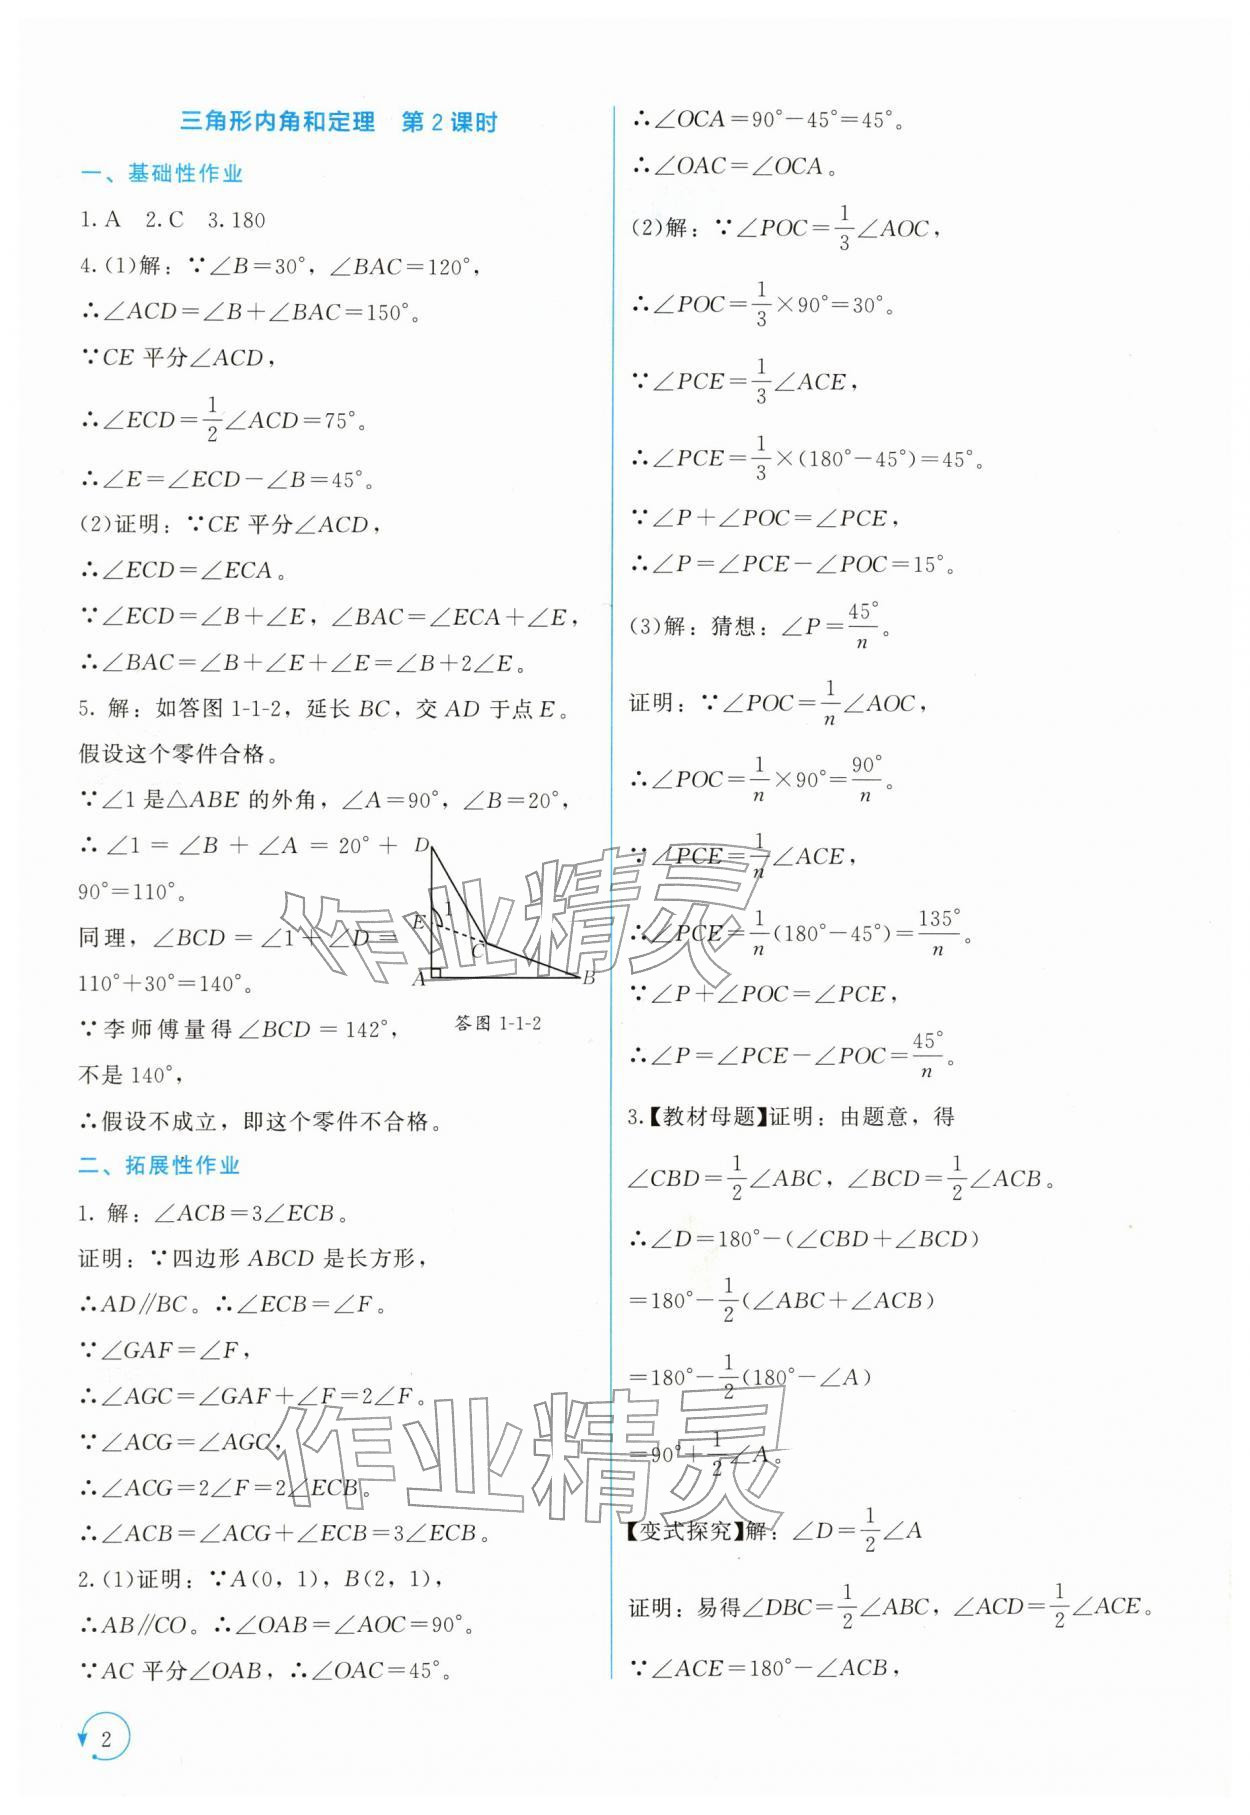 三角形内角和定理　第2课时
一、基础性作业
1. A　2. C　3. 180
4. (1)解：∵∠B=30°，∠BAC=120°，
∴∠ACD=∠B+∠BAC=150°。
∵CE 平分∠ACD，
∴∠ECD=1/2∠ACD=75°。
∴∠E=∠ECD−∠B=45°。
(2)证明：∵CE 平分∠ACD，
∴∠ECD=∠ECA。
∵∠ECD=∠B+∠E，∠BAC=∠ECA+∠E，
∴∠BAC=∠B+∠E+∠E=∠B+2∠E。
5. 解：如答图 1-1-2，延长 BC，交 AD 于点 E。
假设这个零件合格。
∵∠1 是△ABE 的外角，∠A=90°，∠B=20°，
∴∠1=∠B+∠A=20°+
90°=110°。
同理，∠BCD=∠1+∠D=
110°+30°=140°。
∵李师傅量得∠BCD=142°，
不是 140°，
∴假设不成立，即这个零件不合格。
D
E
1
C
A
B
答图 1-1-2
二、拓展性作业
1. 解：∠ACB=3∠ECB。
证明：∵四边形 ABCD 是长方形，
∴AD∥BC。∴∠ECB=∠F。
∵∠GAF=∠F，
∴∠AGC=∠GAF+∠F=2∠F。
∵∠ACG=∠AGC，
∴∠ACG=2∠F=2∠ECB。
∴∠ACB=∠ACG+∠ECB=3∠ECB。
2. (1)证明：∵A(0，1)，B(2，1)，
∴AB∥CO。∴∠OAB=∠AOC=90°。
∵AC 平分∠OAB，∴∠OAC=45°。
2
∴∠OCA=90°−45°=45°。
∴∠OAC=∠OCA。
(2)解：∵∠POC=1/3∠AOC，
∴∠POC=1/3×90°=30°。
∵∠PCE=1/3∠ACE，
∴∠PCE=1/3×(180°−45°)=45°。
∵∠P+∠POC=∠PCE，
∴∠P=∠PCE−∠POC=15°。
(3)解：猜想：∠P=45°/n。
证明：∵∠POC=1/n∠AOC，
∴∠POC=1/n×90°=90°/n。
∵∠PCE=1/n∠ACE，
∴∠PCE=1/n(180°−45°)=135°/n。
∵∠P+∠POC=∠PCE，
∴∠P=∠PCE−∠POC=45°/n。
3.【教材母题】证明：由题意，得
∠CBD=1/2∠ABC，∠BCD=1/2∠ACB。
∴∠D=180°−(∠CBD+∠BCD)
=180°−1/2(∠ABC+∠ACB)
=180°−1/2(180°−∠A)
=90°+1/2∠A。
【变式探究】解：∠D=1/2∠A
证明：易得∠DBC=1/2∠ABC，∠ACD=1/2∠ACE。
∵∠ACE=180°−∠ACB，
作业精灵
作业精灵